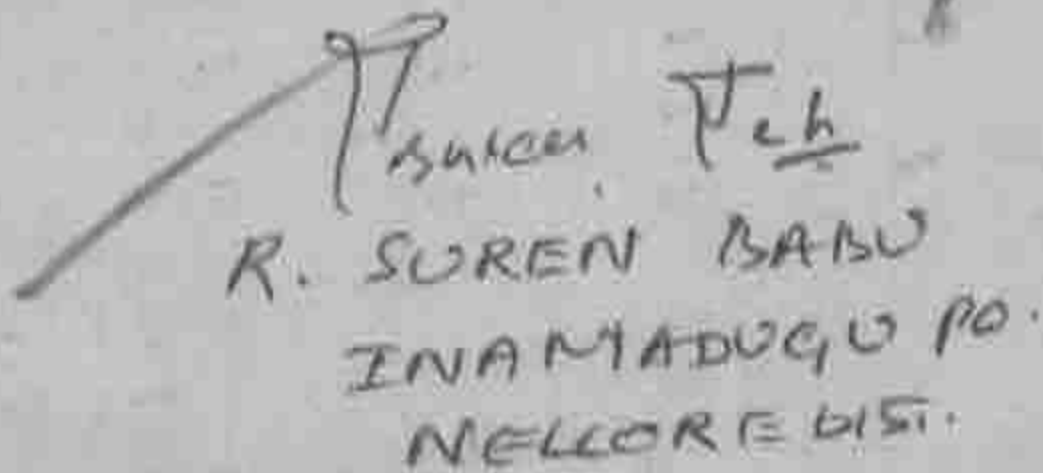 R. SUREN BABU
INAMADUGU PO.
NELLORE DIST.